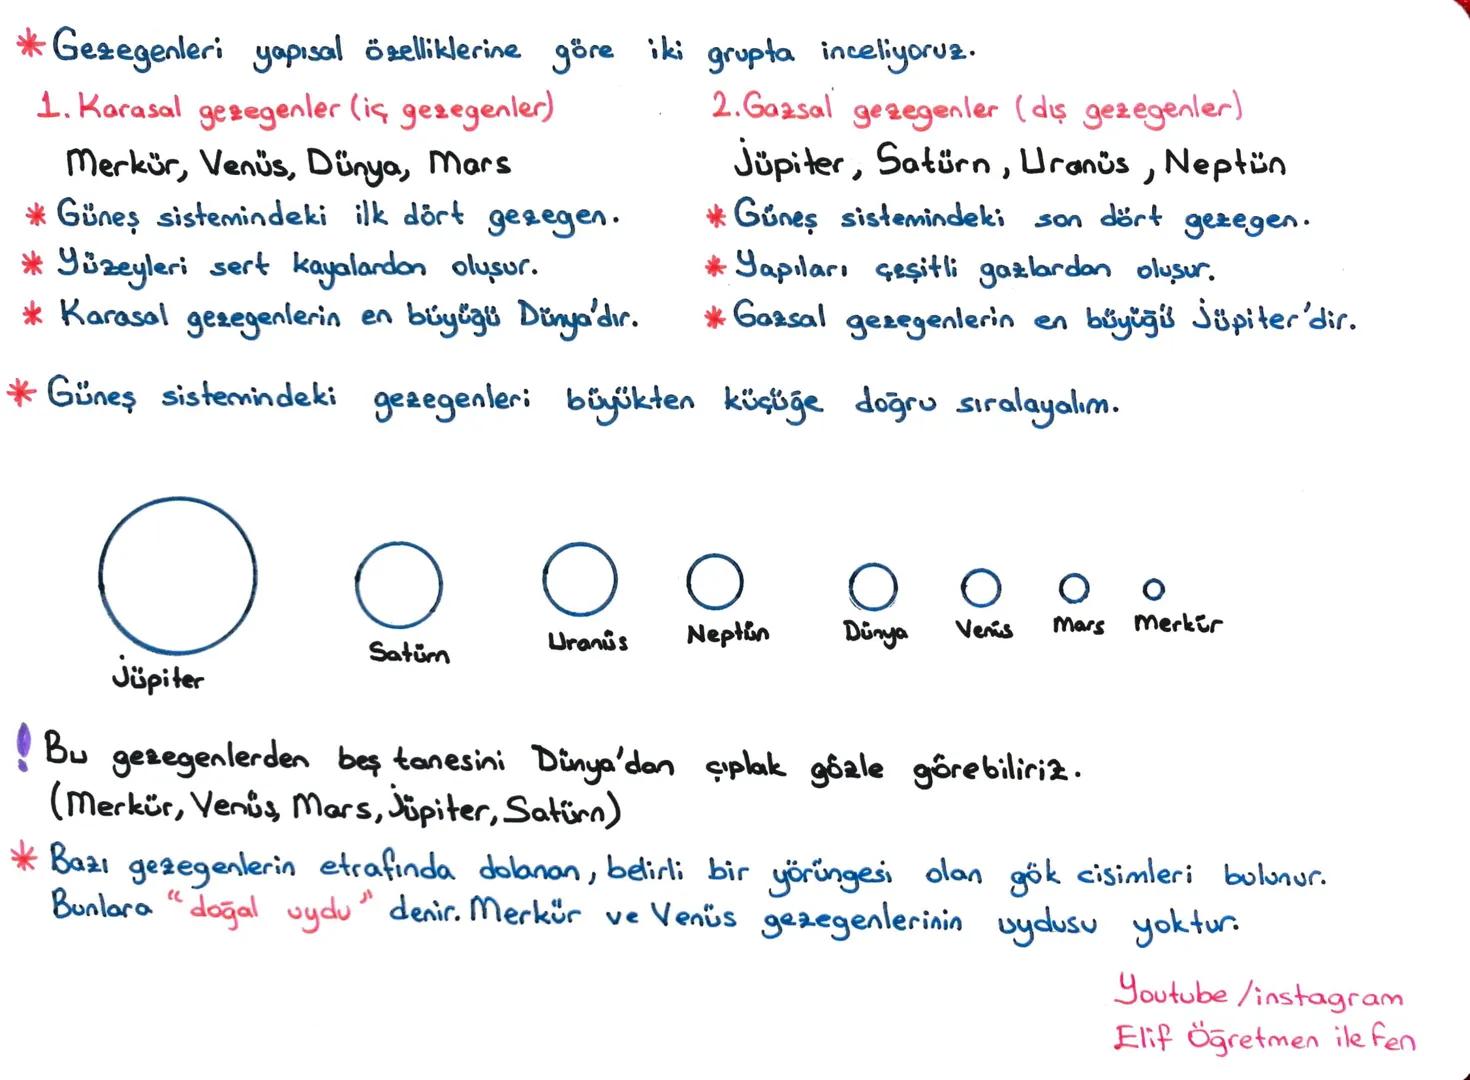 * Gezegenleri yapısal özelliklerine göre iki grupta inceliyoruz.
1. Karasal gezegenler (iç gezegenler)
Merkür, Venüs, Dünya, Mars
* Güneş sistemindeki ilk dört gezegen.
* Yüzeyleri sert kayalardan oluşur.
* Karasal gezegenlerin en büyüğü Dünya'dır.
2. Gazsal gezegenler (dış gezegenler)
Jüpiter, Satürn, Uranüs, Neptün
* Güneş sistemindeki son dört gezegen.
* Yapıları çeşitli gazlardan oluşur.
* Gazsal gezegenlerin en büyüğü Jüpiter'dir.
* Güneş sistemindeki gezegenleri büyükten küçüğe doğru sıralayalım.
Jüpiter
Satürn
Uranüs
Neptün
Dünya
Venüs
Mars
Merkür
! Bu gezegenlerden beş tanesini Dünya'dan çıplak gözle görebiliriz.
(Merkür, Venüs, Mars, Jüpiter, Satürn)
* Bazı gezegenlerin etrafında dolanan, belirli bir yörüngesi olan gök cisimleri bulunur.
Bunlara "doğal uydu" denir. Merkür ve Venüs gezegenlerinin uydusu yoktur.
Youtube /instagram
Elif Öğretmen ile Fen